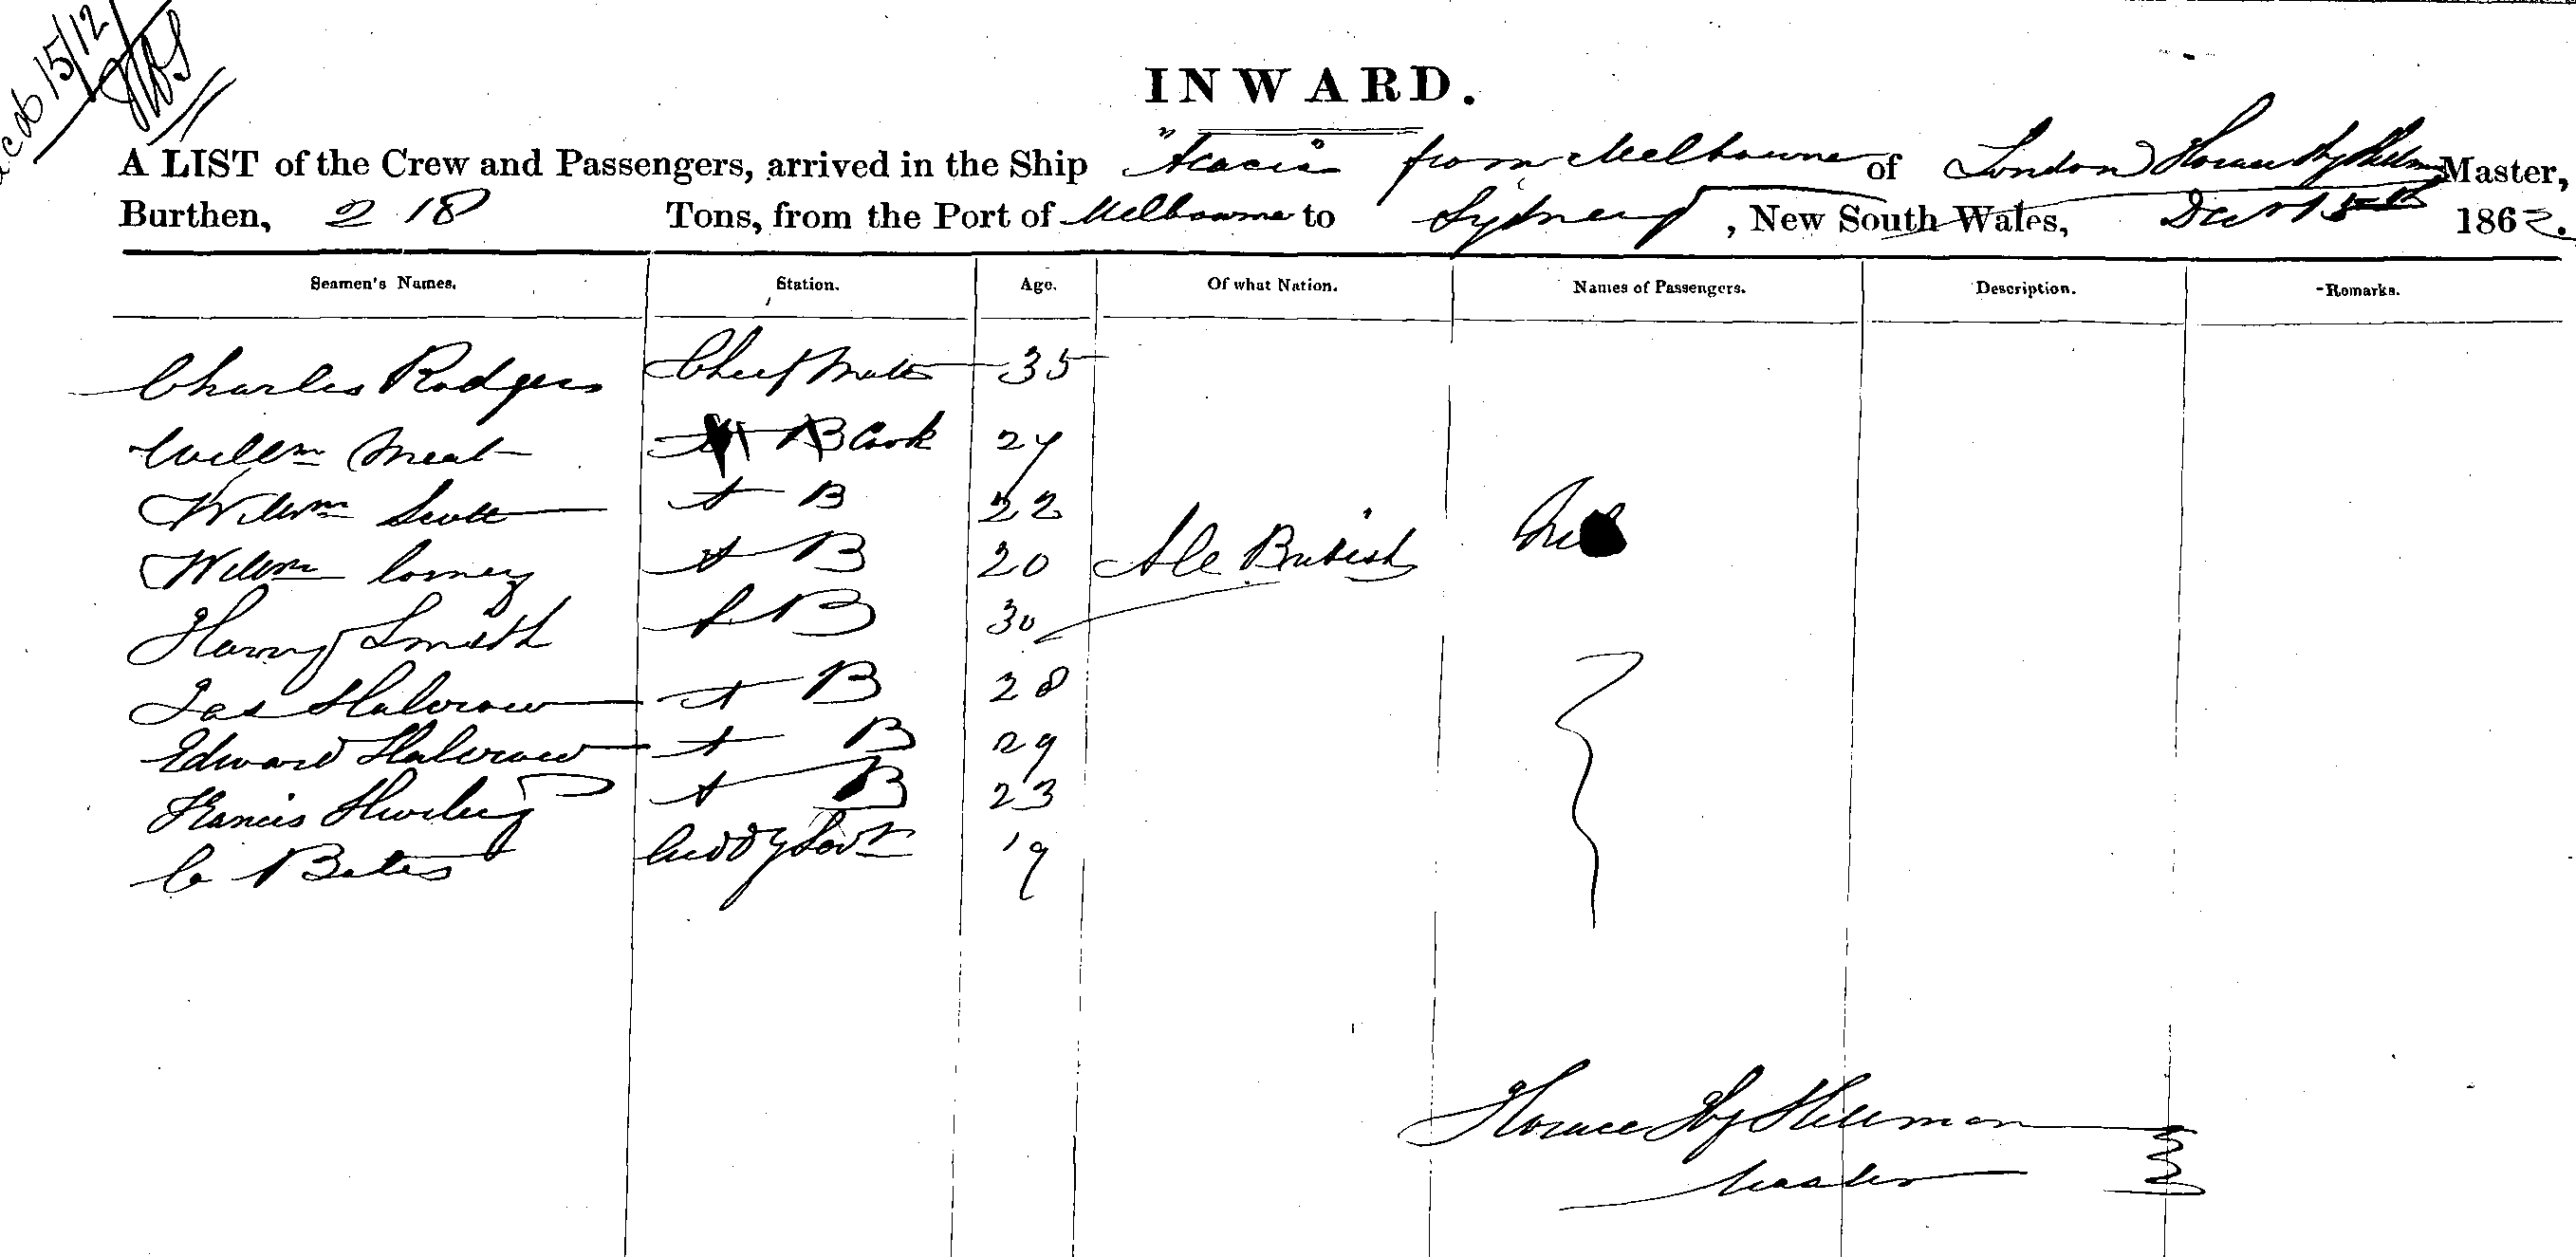 15/12
INWARD.
A LIST of the Crew and Passengers, arrived in the Ship "Acacia from Melbourne of London Horace Hy Hillman Master,
Burthen, 218 Tons, from the Port of Melbourne to Sydney, New South Wales, Decr 15th 1862.
Seamen's Names. Station. Age. Of what Nation. Names of Passengers. Description. Remarks.
Charles Rodgers Chief Mate 35
Willm Meat Cook 27
Willm Scott A B 22
Willm Corney A B 20 All British Nil
Harry Smith A B 30
Jas Halcrow A B 28
Edward Halcrow A B 29
Francis A B 23
C Bates Cuddy Servt 19
Horace Hy Hillman
Master